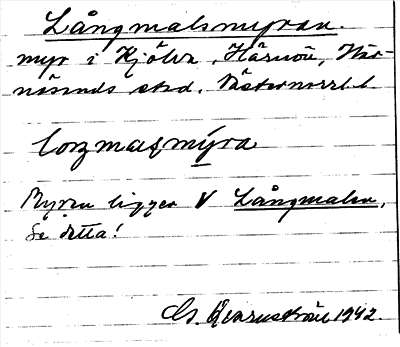 Långmalsmyran.
myr i Kjölva, Härnön, Här-
nösands stad. Västernorrl. l.
lozmaɋmýra
Myren ligger V Långmalen,
se detta!
G. Qvarnström 1942.